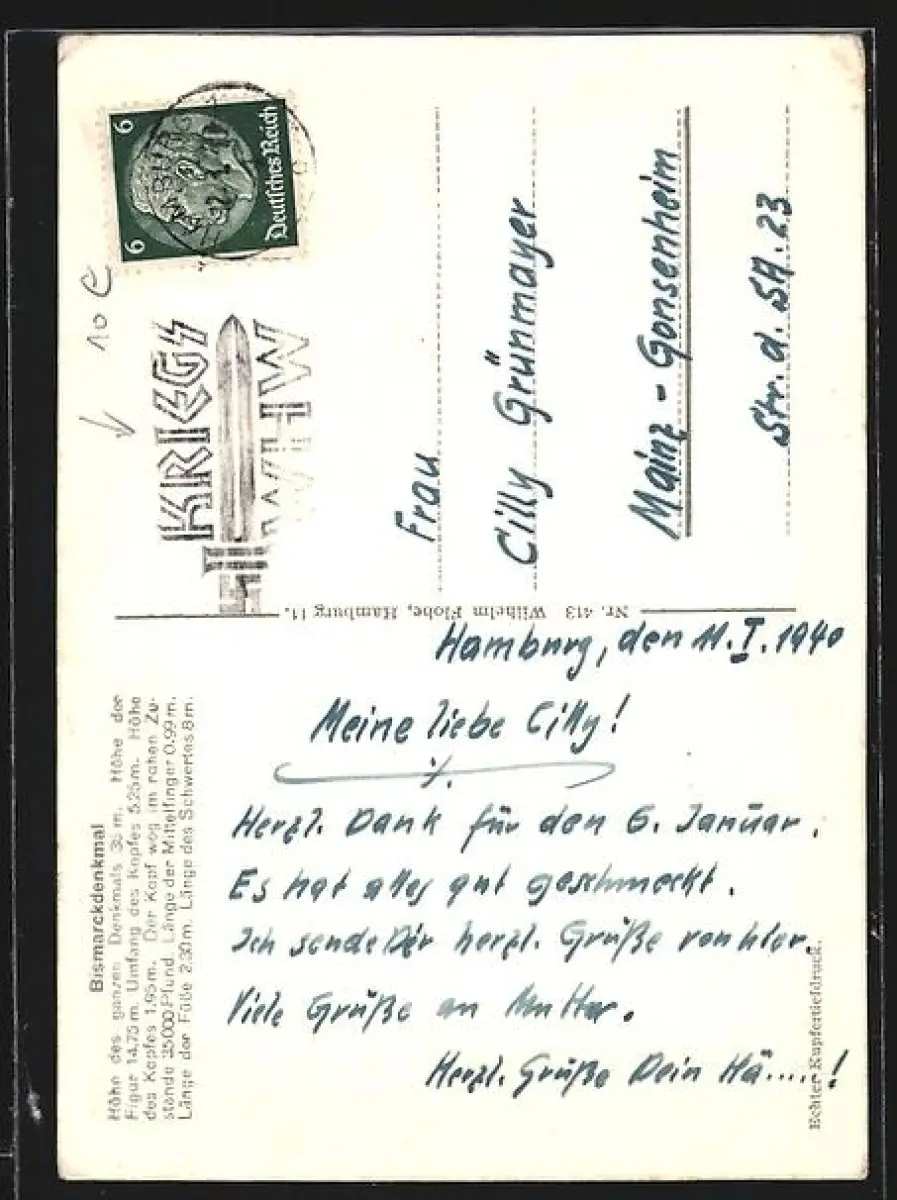 Bismarckdenkmal
Höhe des ganzen Denkmals 35 m. Höhe der
Figur 14,75 m. Umfang des Kopfes 5,25 m. Höhe
des Kopfes 1,95 m. Der Kopf wog im rohen Zu-
stande 35000 Pfund. Länge der Mittelfinger 0.99 m.
Länge der Füße 2.30 m. Länge des Schwertes 8 m.
Hamburg, den 11. I. 1940
Meine liebe Cilly!
Herzl. Dank für den 6. Januar.
Es hat alles gut geschmeckt.
Ich sende Dir herzl. Grüße von hier.
Viele Grüße an Mutter.
Herzl. Grüße Dein Hä.....!
Echter Kupfertiefdruck.
Nr. 413 Wilhelm Flohe, Hamburg 11.
KRIEGS
WHW
6 6
Deutsches Reich
10 e
Frau
Cilly Grünmayer
Mainz - Gonsenheim
Str. d. SA. 23